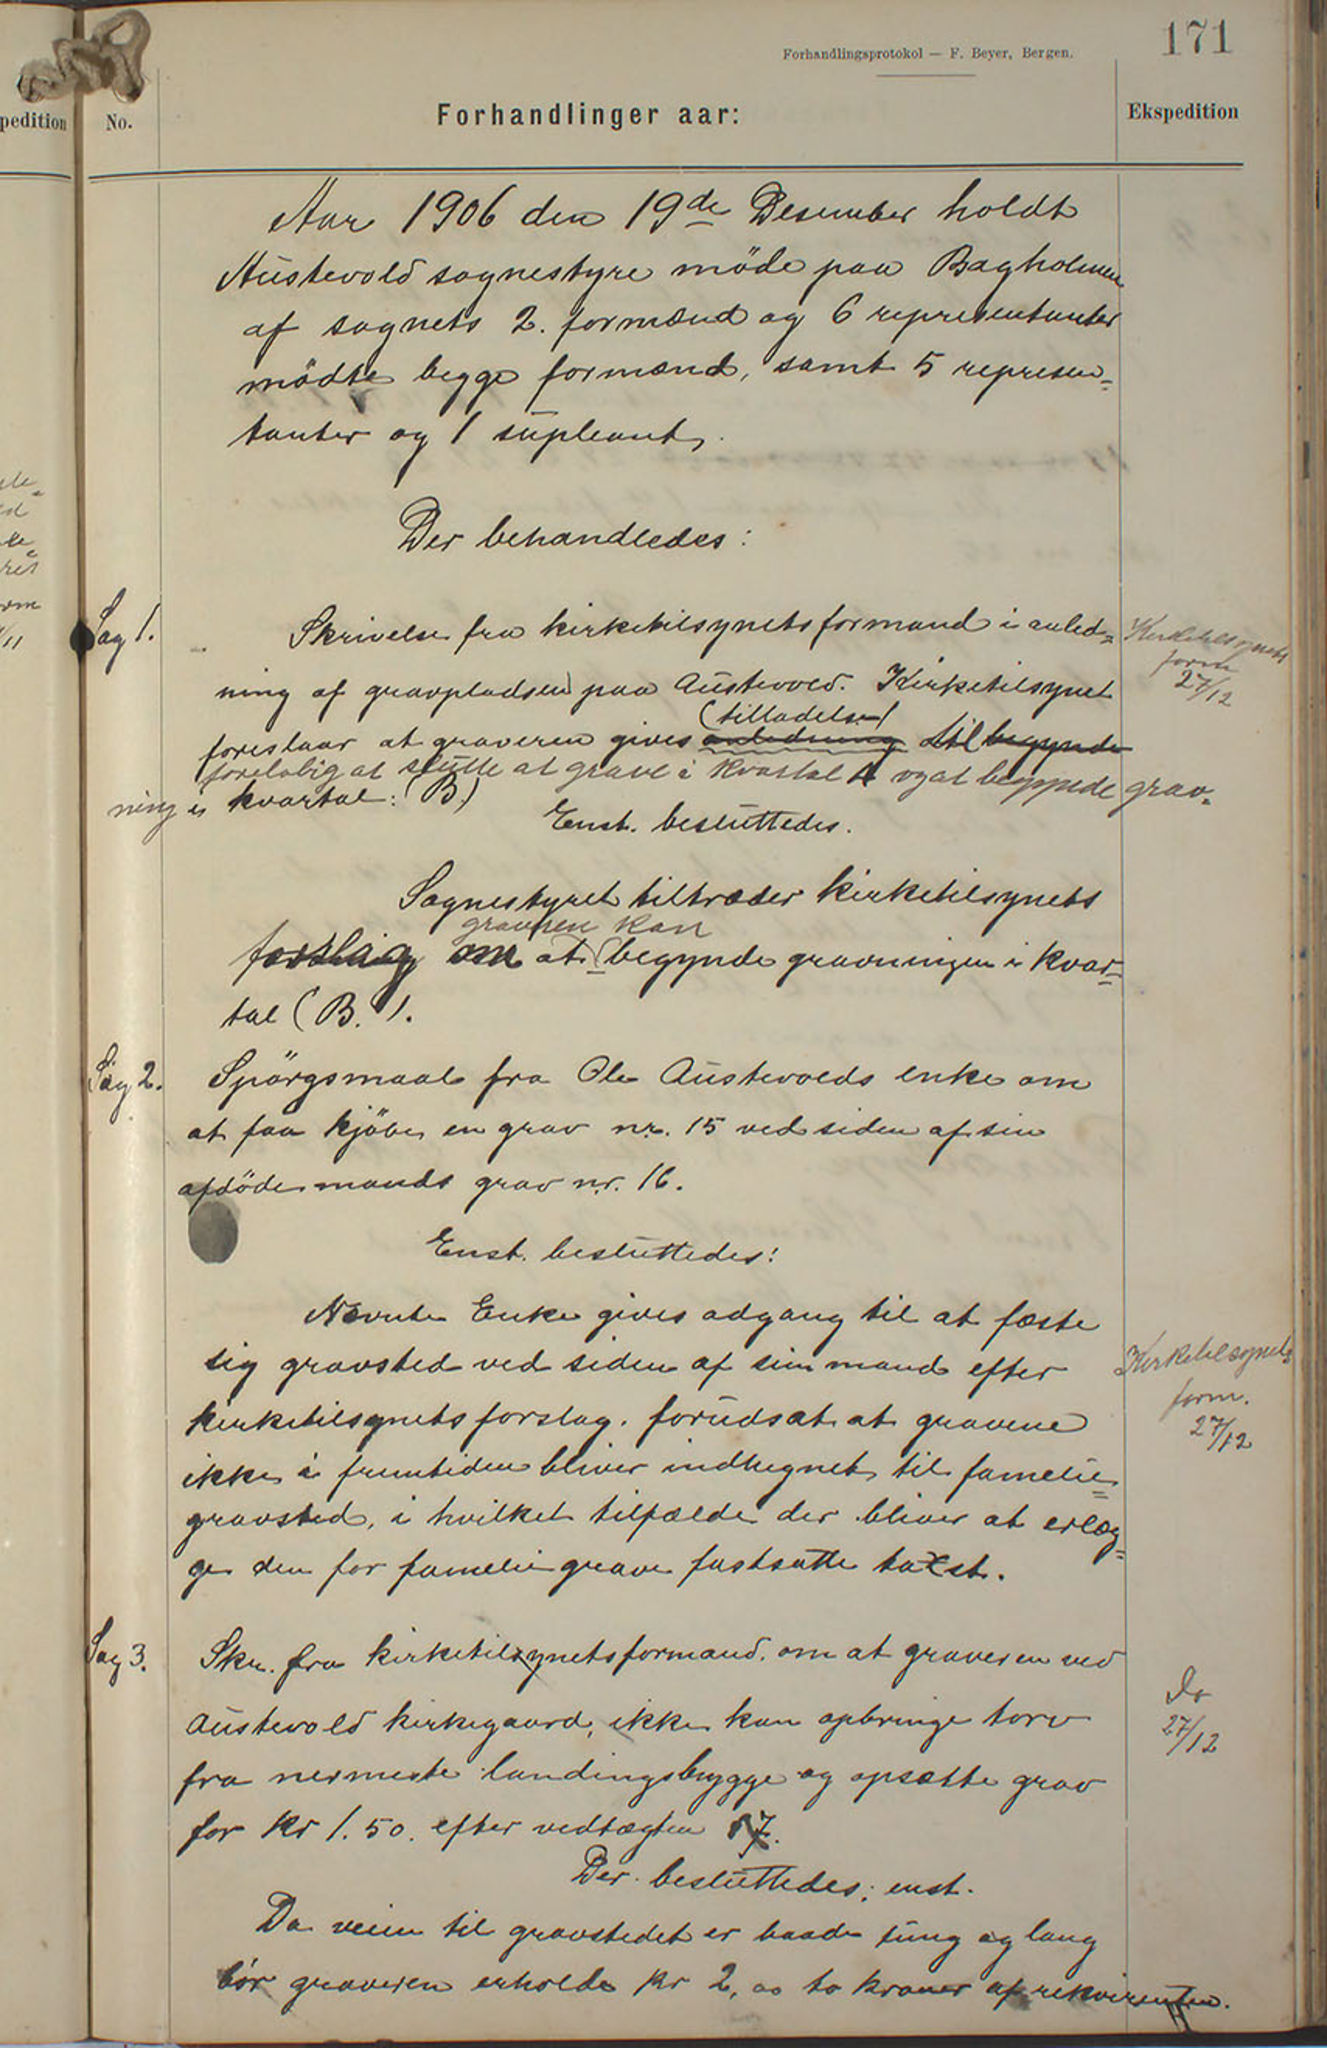 171
Forhandlingsprotokol — F. Beyer, Bergen.
pedition
No.
Forhandlinger aar:
Ekspedition
Aar 1906 den 19de Desember holdt
Austevold sognestyre møde paa Bagholmen
af sognets 2. formænd og 6 representanter
mödte begge formænd, samt 5 represen-
tanter og 1 supleant.
Der behandledes:
Sag 1.
Skrivelse fra kirketilsynets formand i anled-
Kirketilsynets
form
27/12
ning af gravpladsen paa Austevold. Kirketilsynet
(tilladelse)
foreslaar at graveren gives anledning til begynde
foreløbig at slutte at grave i kvartal A og at begynde grav-
ning i kvartal: (B.)
Enst. besluttedes.
Sognestyret tiltræder kirketilsynets
graveren kan
forslag om at begynde gravningen i kvar-
tal (B.).
Sag 2.
Spörgsmaal fra Ole Austevolds enke om
at faa kjöbe en grav nr. 15 ved siden af sin
afdöde mands grav nr. 16.
Enst. besluttedes:
Nevnte Enke gives adgang til at fæste
sig gravsted ved siden af sin mand efter
Kirketilsynets
form.
27/12
kirketilsynets forslag. forudsat at gravene
ikke i fremtiden bliver indhegnet til famelie-
gravsted, i hvilket tilfælde der bliver at erlæg-
ge den for famelie grave fastsatte taxst.
Sag 3.
Skr. fra kirketilsynets formand. om at graveren ved
Do
27/12
Austevold kirkegaard, ikke kan opbringe torv
fra nermeste landingsbrygge og opsætte grav
for Kr 1.50. efter vedtægten § 7.
Der besluttedes; enst.
Da veien til gravstedet er baade tung og lang
bör graveren erholde Kr 2, oo to kroner af rekvirenten.